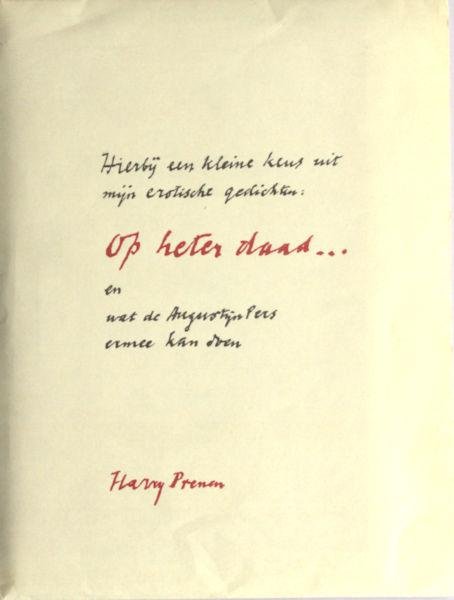 Hierbij een kleine keus uit
mijn erotische gedichten:
Op heter daad...
en
wat de Augustijn Pers
ermee kan doen
Harry Prenen